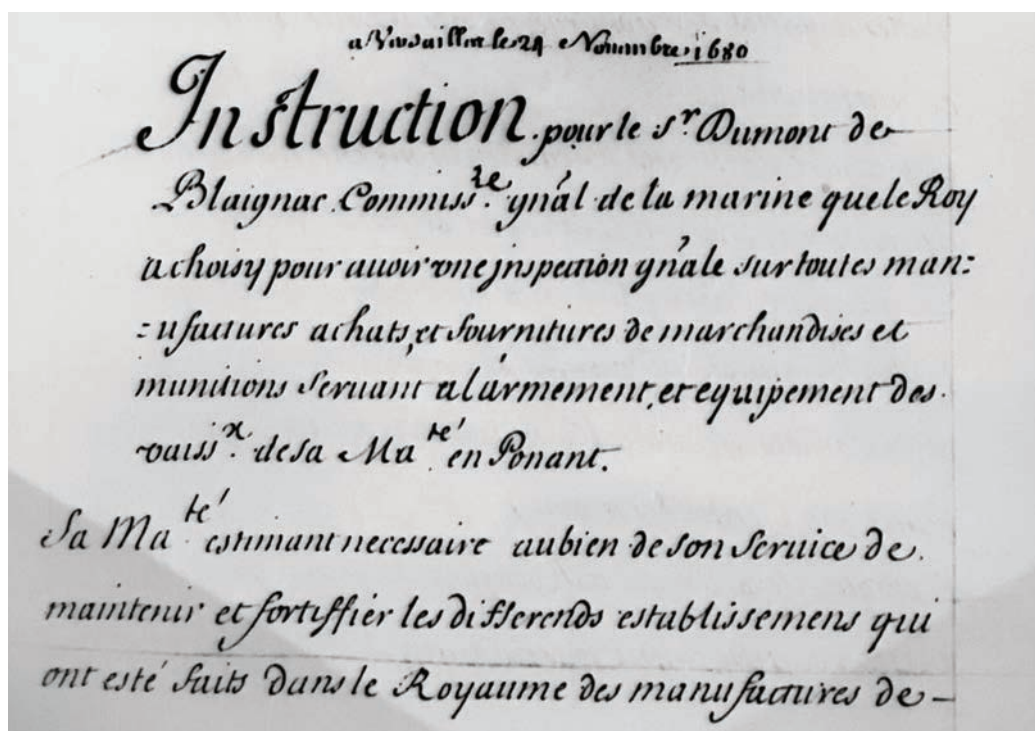 a Versailles le 24 Novembre 1680
Instruction pour le Sr. Dumont de
Blaignac Commissre. gñal de la marine que le Roy
a choisy pour auoir vne jnspection gñale sur toutes man=
=ufactures achats, et fournitures de marchandises et
munitions seruant a l'armement, et equipement des
vaissx. de sa Maté en Ponant.
Sa Maté estimant necessaire au bien de son seruice de
maintenir et fortiffier les differends establissemens qui
ont esté faits dans le Royaume des manufactures de